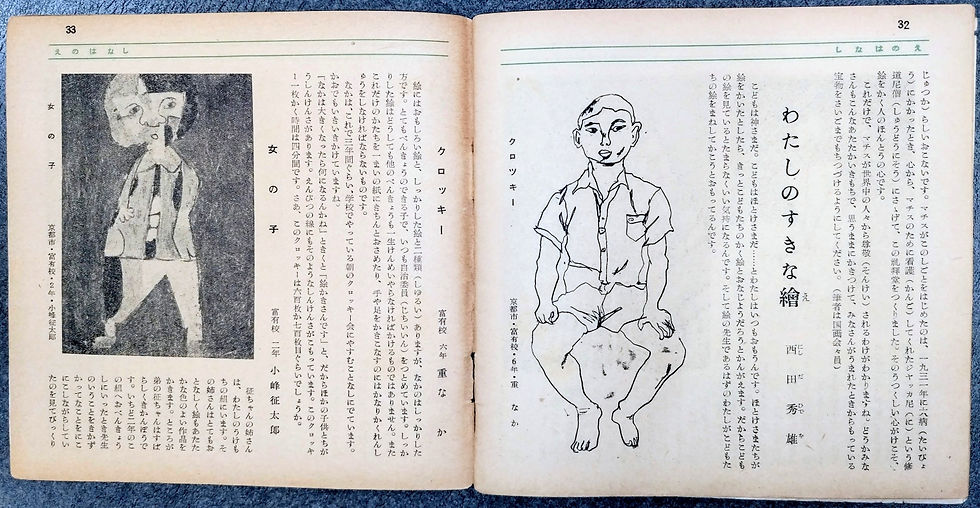 32
しなはのえ
じゅつかこらしいおこないです。マチスがこのしごとをはじめたのは、一九三二年に大病（たいびょ
う）にかかったとき、心から、マチスのために看護（かんご）してくれたジャック尼（に）という修
道尼僧（しゅうどうにそう）にささげて、この礼拝堂をつくりました。そのうつくしい心がけこそ、
絵をかく人のほんとうの心です。
これだけで、マチスが世界中の人々から尊敬（そんけい）されるわけがわかりますね。どうかみな
さんもこんなあたたかいきもちで、思うままにかきつけて、みなさんがうまれたときからもっている
宝物をさいごまでもちつづけるようにしてください。（筆者は国画会々員）
わたしのすきな繪
え
西田秀雄
にしだひでお
こどもは神さまだ。こどもはほとけさまだ……とわたしはいつもおもうんです。ほとけさまたちが
絵をかいたとしたら、きっとこどもたちのかく絵とおなじようだろうとかんがえます。だからこども
の絵を見ているとたまらなくいい気持になるんです。そして絵の先生であるはずのわたしがこどもた
ちの絵をまねしてかこうとおもってるんです。
クロッキー
京都市・富有校・6年・重 なか
33
えのはなし
クロッキー
富有校 六年 重 なか
絵にはおもしろい絵と、しっかりした絵と二種類（しゅるい）ありますが、なかのはしっかりした
方です。とてもべんきょうのできる子で、いつも自治委員（じちいいん）をつとめています。しっか
りした絵はどうしても他のべんきょうも一生けんめいやらなければかけるものではありません。また
これだけのかたちを一まいの紙にきちんとおさめたり、手や足をかきこなすのにはかなりかくれんし
ゅうをしなければならないものです。
なかは、これで三年間ぐらい、学校でやっている朝のクロッキー会にやすむことなしにでています。
かおでもいきいきかけていますね。
「なかは大きくなったら何になるんかね」ときくと「絵かきさんです」と、だからほかの子供とちが
うしんけんさがあります。えんぴつの線にもそのようなしんけんさがこもっています。このクロッキ
ー一枚かく時間は四分間です。さあ、このクロッキーは六百枚か七百枚目ぐらいでしょうか。
女の子
富有校 二年 小峰征太郎
征ちゃんの姉さん
は、わたしのうけも
ちの組にいます。そ
の姉さんはとてもお
となしく絵もあたた
かな色のよい作品を
かきます。ところが
弟の征ちゃんはすば
らしくきかんぼうで
す。いちど二年のこ
の組へおべんきょう
しにいったとき先生
のいうことをきかず
かってなことをにこ
にこしながらしてい
たのを見てびっくり
女の子
京都市・富有校・2年・小峰征太郎